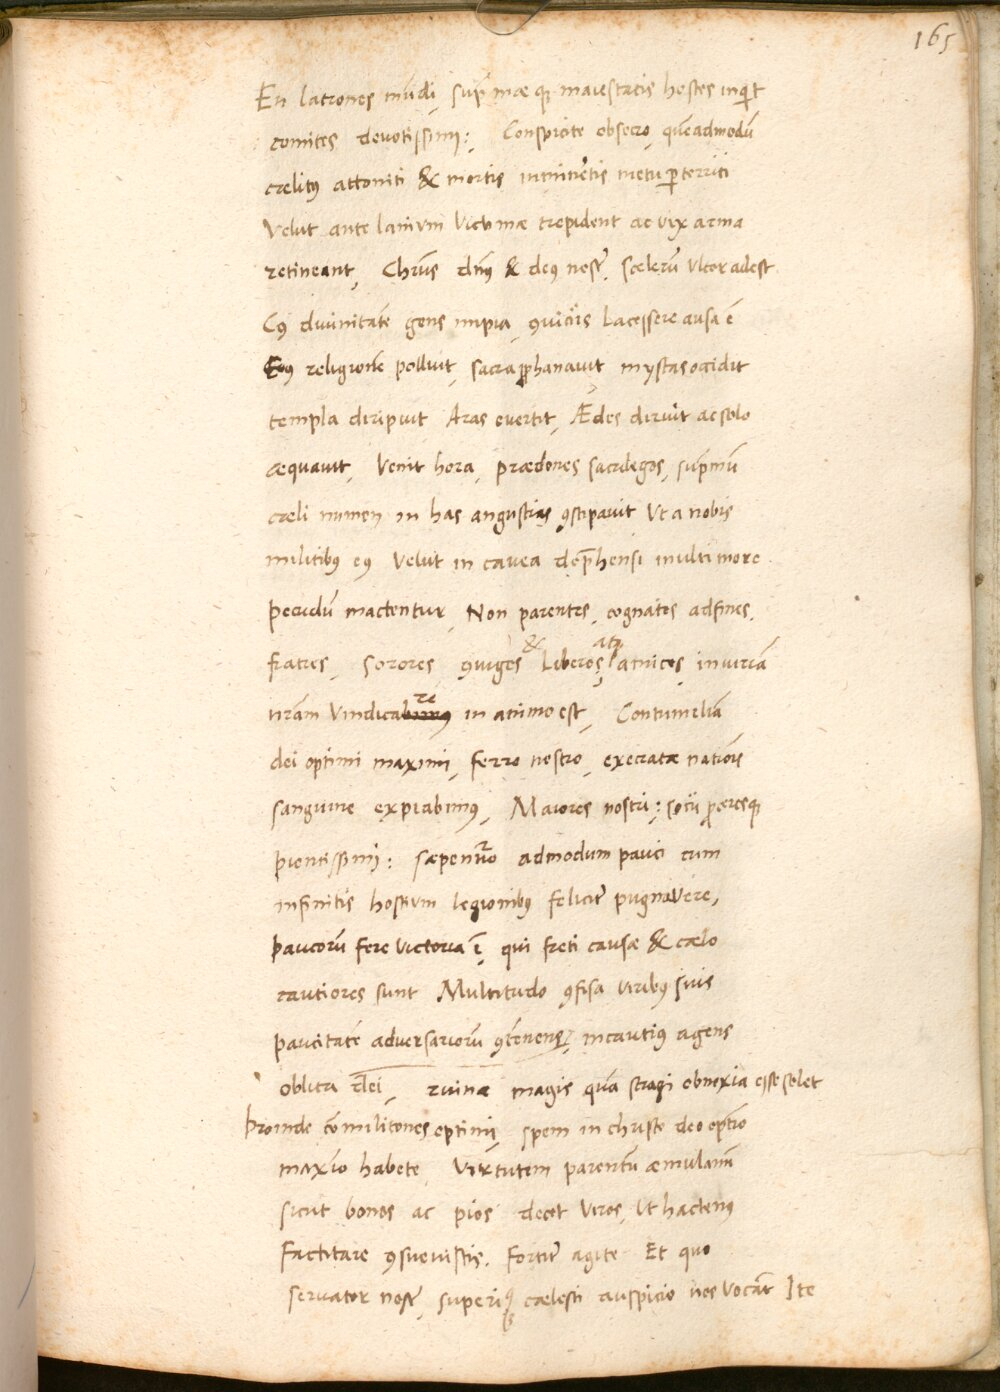 165
En latrones mūdi, sup̄mæq̄ maiestatis hostes inqͥt
comites devotissimi: Conspicite obsecro, quēadmodū
cælitus attoniti & mortis iminētis metu ꝑterriti
Velut ante lanium Victimæ trepident ac vix arma
retineant, Chrūs dn̄s & deꝰ nosͭ, scelerū Vltor adest
Cꝰ diuinitatē gens impia, ꝯuiciis Lacessere ausa ē
Eiꝰ religionē polluit, sacra ꝓphanauit mystas occidit
templa diripuit Aras euertit, Ædes diruit ac solo
æquauit, Venit hora, prædones sacrilegos, sup̄mū
cæli numen in has angustias ꝯstipauit Vt a nobis
militibꝰ eꝰ Velut in cauea dep̄hensi inulti more
pecudū mactentur, Non parentes, cognatos adfines,
fratres, Sorores, ꝯiuges & Liberos, atq̄ amicos, iniuriā
nr̄am Vindicare in animo est, Contumeliā
dei optimi maximi, ferro nostro, execratæ natiōis
sanguine expiabimꝰ, Maiores nostri: socii ꝓceresque
pientissimi: sæpenūͬo admodum pauci cum
infinitis hostium legionibꝰ feliciͭ pugnauere,
paucorū fere Victoria ē, qui freti causæ & cælo
cautiores sunt Multitudo ꝯfisa viribꝰ suis
paucitatē aduersariorū ꝯtēnens, incautiꝰ agens
oblita dei, ruinæ magis quā stragi obnoxia esse solet
Proinde cōmilitones optimi, spem in christo deo optīo
maxīo habete Virtutem parentū æmulamī
sicut bonos ac pios decet Viros, Vt hactenꝰ
Factitare ꝯsueuistis. Fortiͭ agite Et quo
seruator nosͭ, superiq̄ cælesti auspicio nos Vocāt Ite